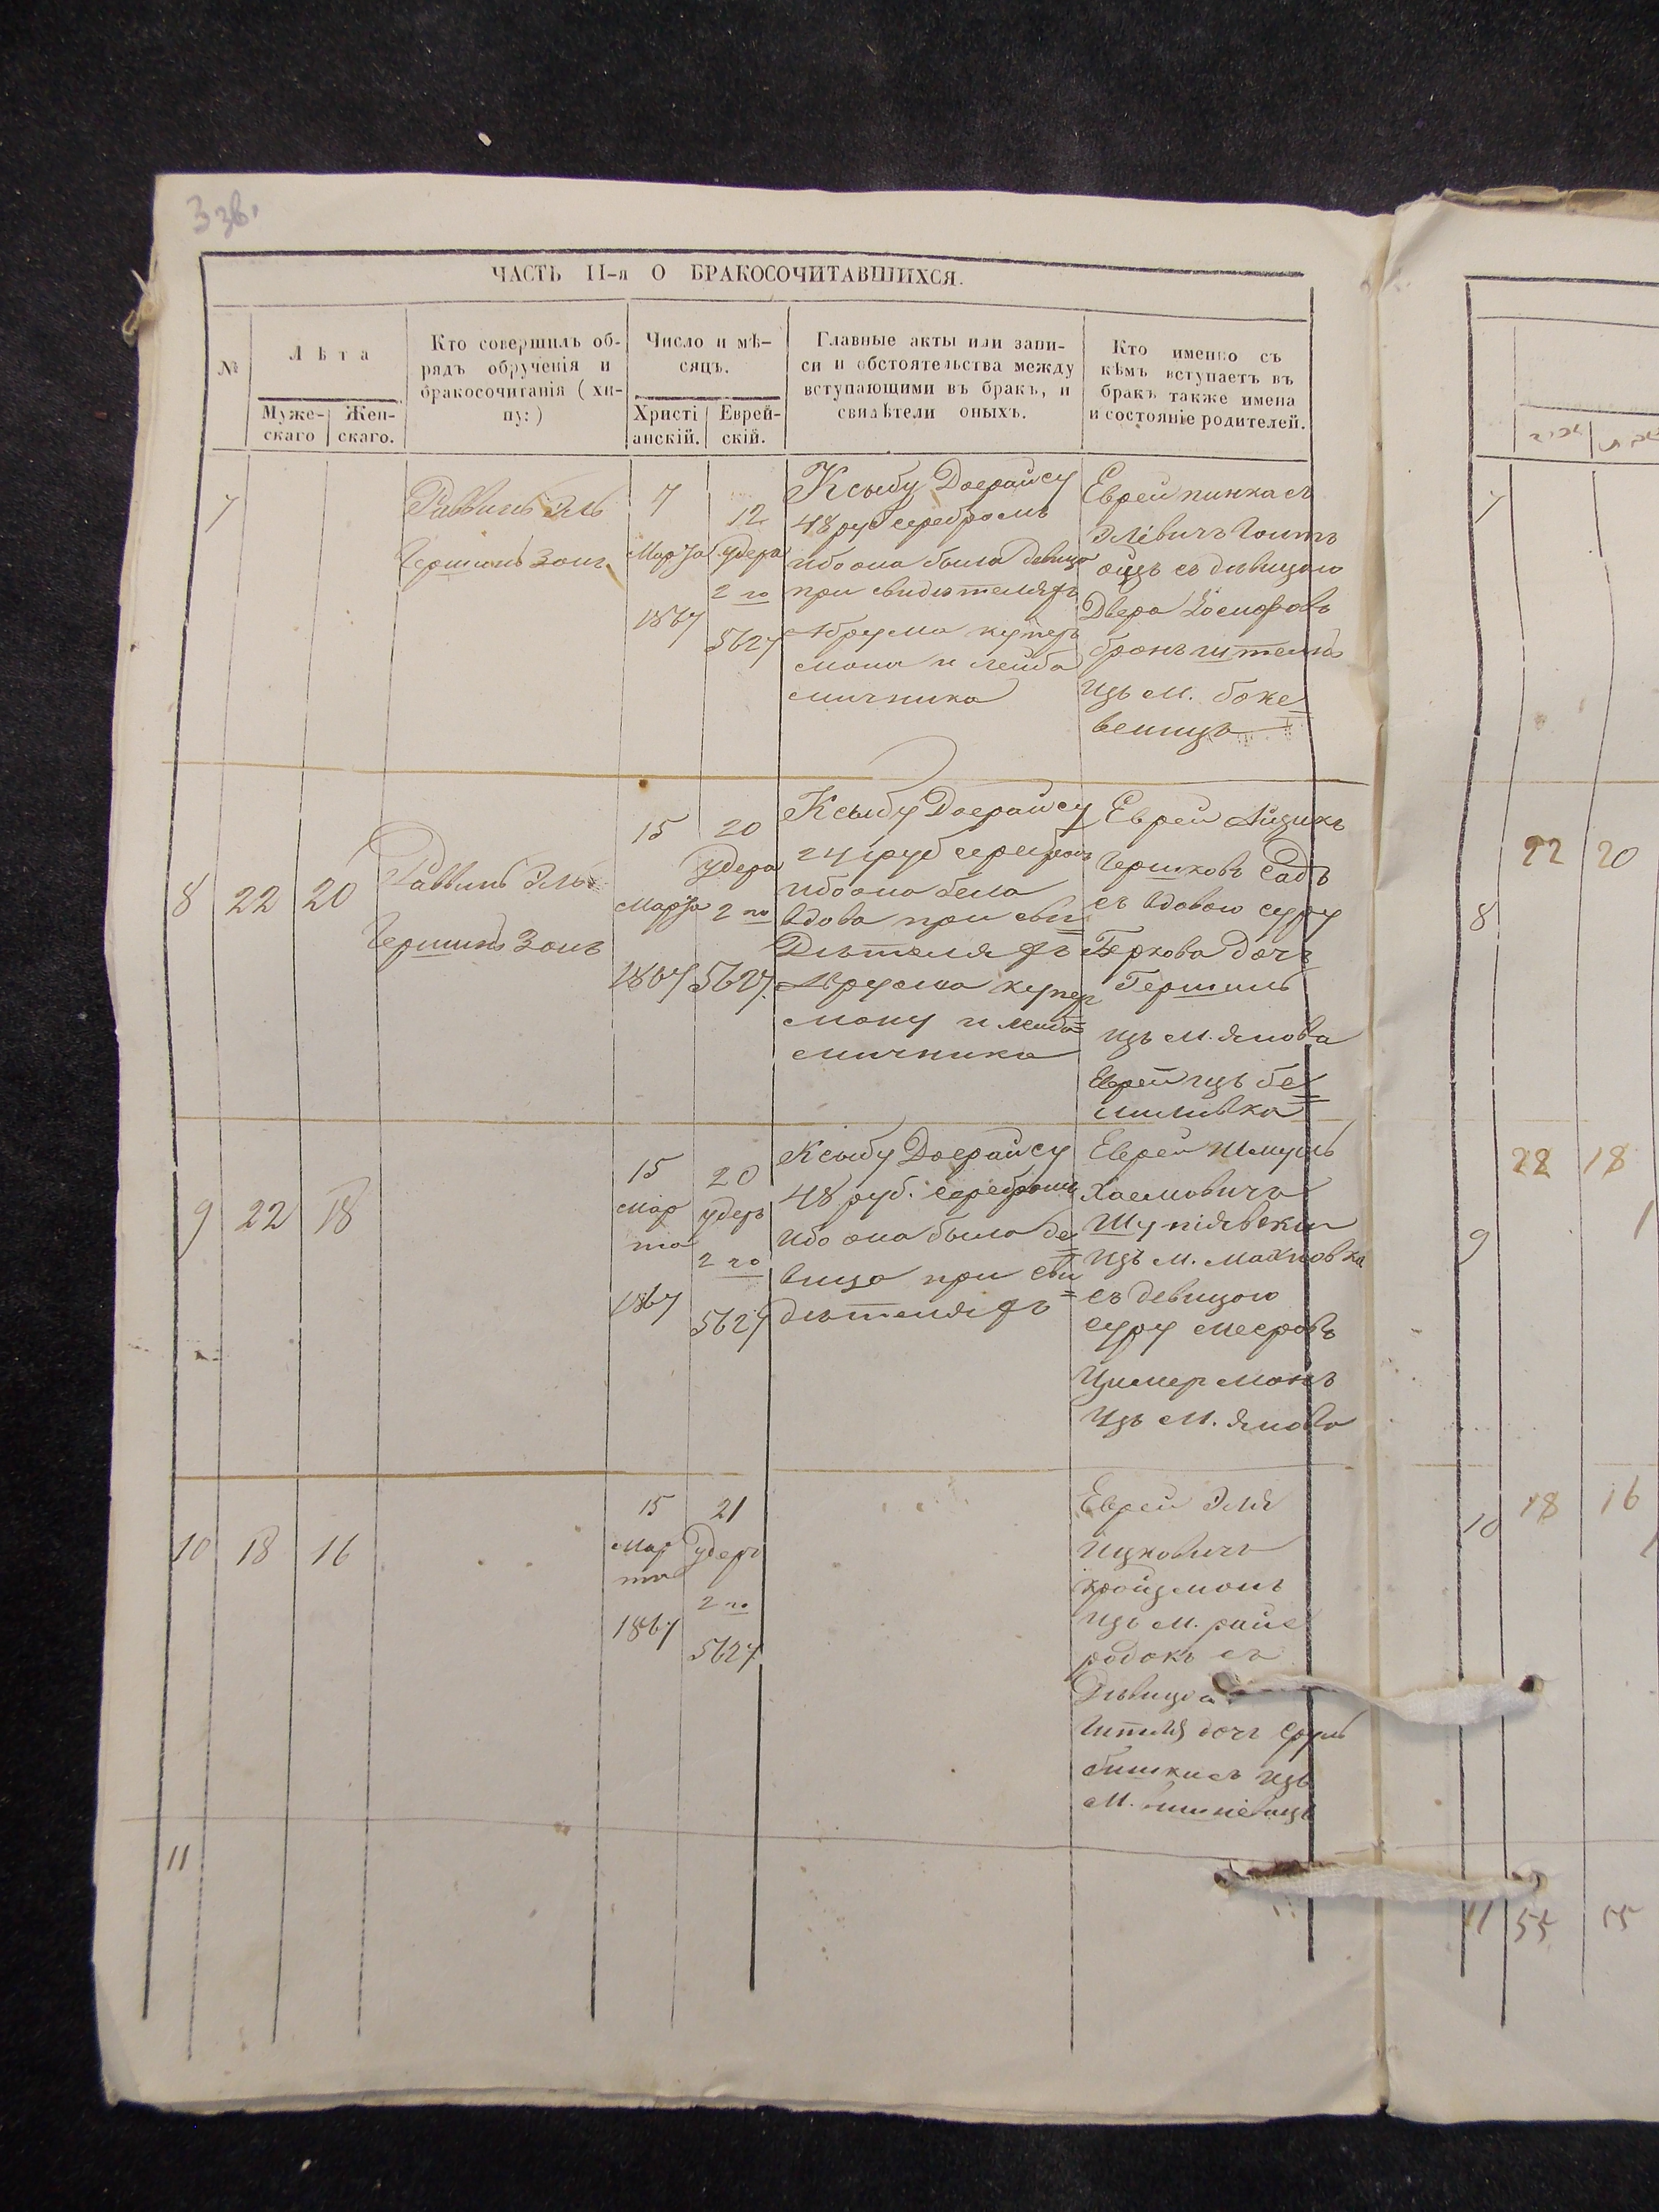 3 зв.
ЧАСТЬ II-я О БРАКОСОЧИТАВШИХСЯ.
№
Лѣта
Муже-
скаго
Жен-
скаго.
Кто совершилъ об-
рядъ обрученія и
бракосочитанія (хи-
пу:)
Число и мѣ-
сяцъ.
Христі
анскій.
Еврей-
скій.
Главные акты или запи-
си и обстоятельства между
вступающими въ бракъ, и
свидѣтели оныхъ.
Кто именно съ
кѣмъ вступаетъ въ
бракъ также имена
и состояніе родителей.
7
Раввинъ Эль
Гершинъ Зонъ
7
Марта
1867
12
Удера
2 го
5627
Ксыбу Доерайсу
48 руб серебромъ
ибо она была девицо
при свидѣтеляхъ
Абрума купер
мона и лейба
мичника
Еврей пинкасъ
Элевичъ
съ дѣвицою
Двера Иосифовъ
изъ м.
8
22
20
Раввинъ Эль
Гершинъ Зонъ
15
Марта
1867
20
Удера
2 го
5627
Ксыбу Доерайсу
24 руб серебромъ
ибо она бела
вдова при сви=
дѣтеляхъ
Абрума купер
мону и лейба=
мичника
Еврей Айзикъ
Гершковъ Садъ
съ вдовою суру
Беркова дочь
Гершинъ
изъ М. янова
Еврей изъ
9
22
18
15
Мар
та
1867
20
удеръ
2 го
5627
Ксыбу Доерайсу
48 руб. серебромъ
ибо она была де=
вицо при сви=
дѣтеляхъ
Еврей Шмуль
Хаемовичъ
изъ М. Махновка
съ девицою
суру Мееровъ
Цимермонъ
изъ М. янова
10
18
16
15
Мар
та
1867
21
Удеръ
2 го
5627
Еврей Эля
Ицковичъ
кройцмонъ
изъ М. райе
родокъ съ
Дѣвицоа
дочь Сруль
изъ
М.
11
7
8
22
20
9
22
18
10
18
16
11
55
55